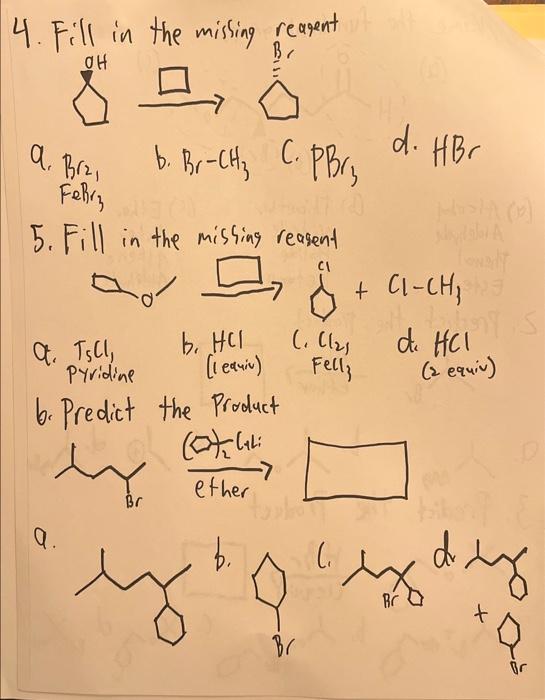 4. Fill in the missing reagent
OH
Br
a. Br2,
FeBr3
b. Br-CH3
C. PBr3
d. HBr
5. Fill in the missing reagent
O
Cl
+ Cl-CH3
a. TsCl,
Pyridine
b. HCl
(1 equiv)
C. Cl2,
FeCl3
d. HCl
(2 equiv)
6. Predict the Product
Br
( )2 CuLi
ether
a.
b.
Br
C.
Br
d.
+
Br